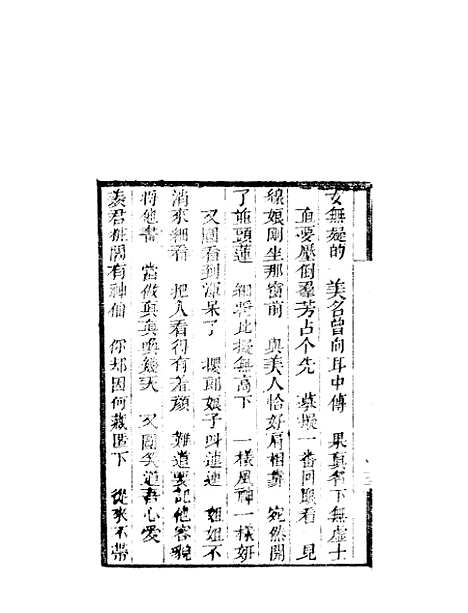 女無疑的　美名曾向耳中傳　果真名下無虛士
直要壓倒羣芳占个先　莫擬一番回眼看　見
線娘剛坐那窗前　與美人恰好肩相靠　宛然開
了並頭蓮　細將比擬無高下　一樣風神一樣妍
又圖看到凉呆了　櫻郎娘子叫蓮連　姐姐不
消來細看　把人看得有羞顔　難道要記他容貌
將他畫　當做真真喚幾天　又圖笑道吾心愛
羨君樓閣有神仙　你却因何藏匿下　從來不帶